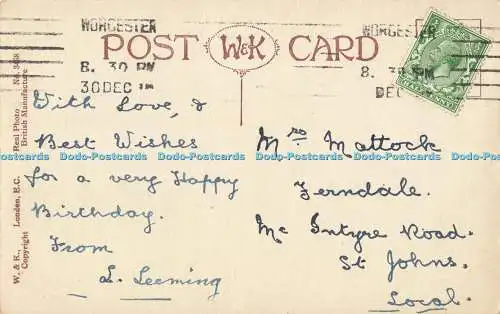 WORCESTER
8. 30 PM
30 DEC
WORCESTER
8. 30 PM
DEC
POST W&K CARD
W. & K., London, E.C. Real Photo No. 3488
Copyright British Manufacture
With Love, &
Best Wishes
for a very Happy
Birthday.
From
L. Leeming
Mrs Mattock
Ferndale.
Mc Intyre Road.
St Johns.
Local.
Dodo-Postcards Dodo-Postcards Dodo-Postcards Dodo-Postcards Dodo-Postcards Dodo-Postcards